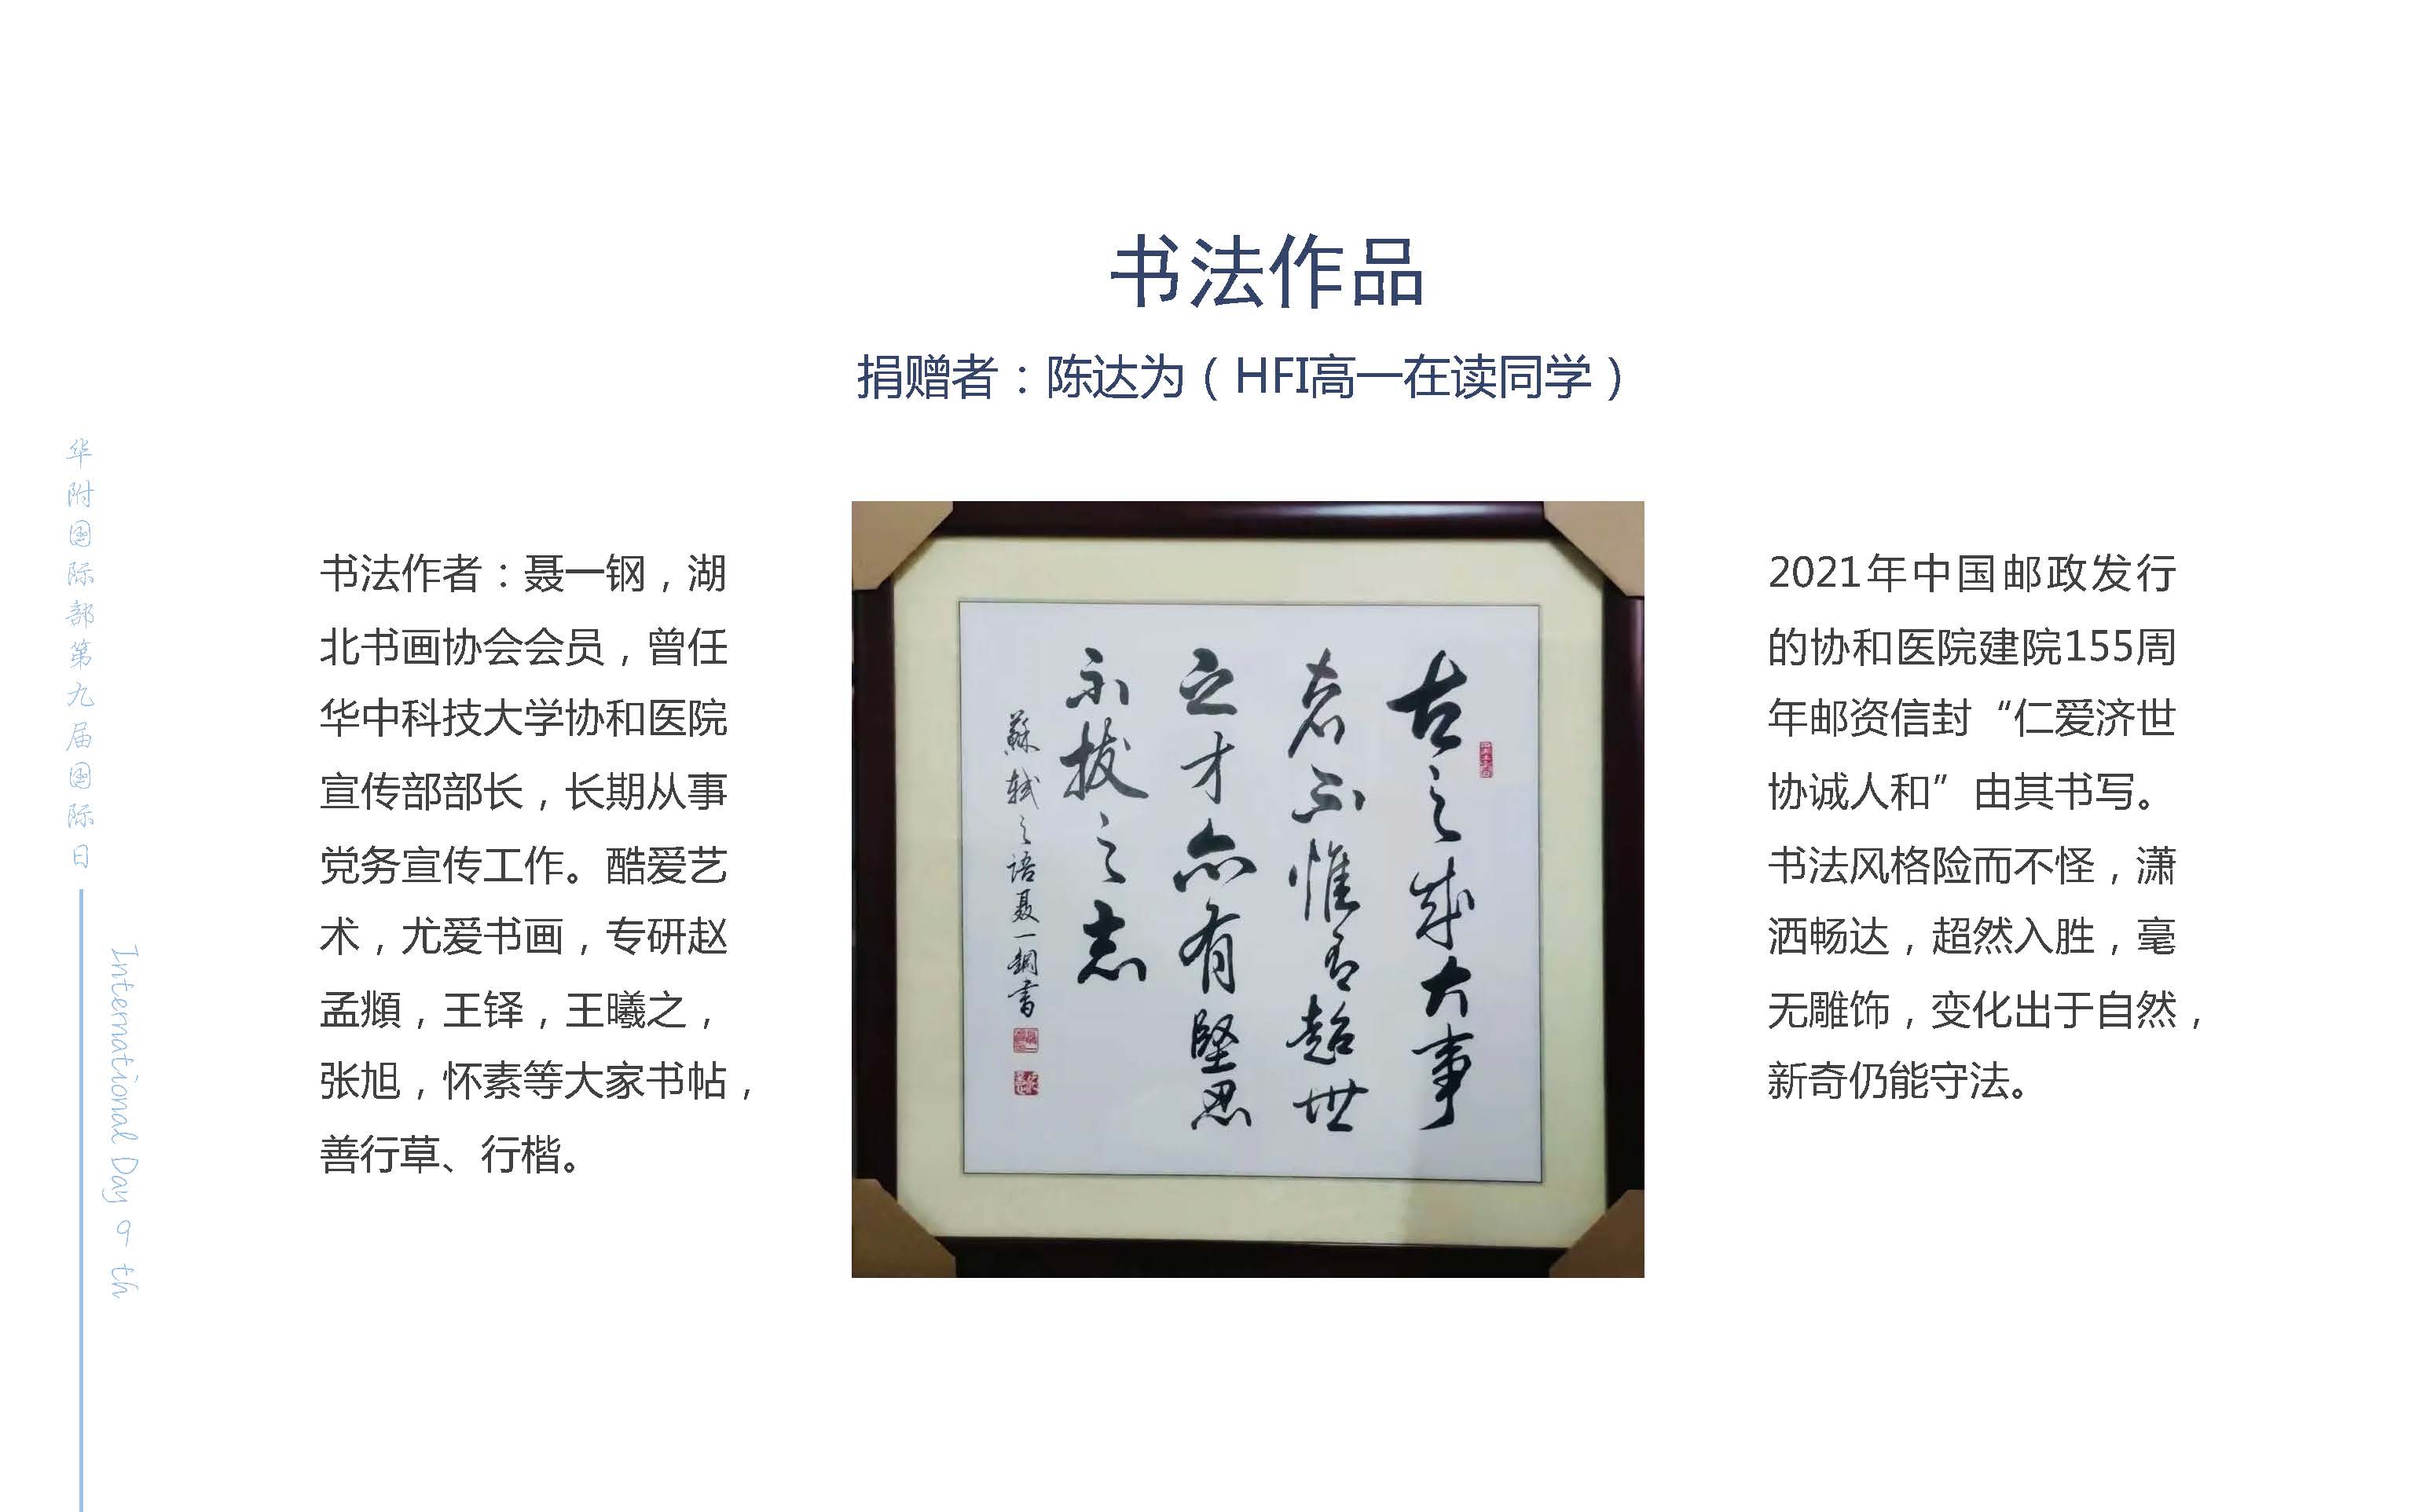 书法作品
捐赠者：陈达为（HFI高一在读同学）
华附国际部第九届国际日
International Day 9 th
书法作者：聂一钢，湖
北书画协会会员，曾任
华中科技大学协和医院
宣传部部长，长期从事
党务宣传工作。酷爱艺
术，尤爱书画，专研赵
孟頫，王铎，王曦之，
张旭，怀素等大家书帖，
善行草、行楷。
古之成大事
者不惟有超世
之才亦有堅忍
不拔之志
蘇軾之語聂一鋼書
2021年中国邮政发行
的协和医院建院155周
年邮资信封“仁爱济世
协诚人和”由其书写。
书法风格险而不怪，潇
洒畅达，超然入胜，毫
无雕饰，变化出于自然，
新奇仍能守法。